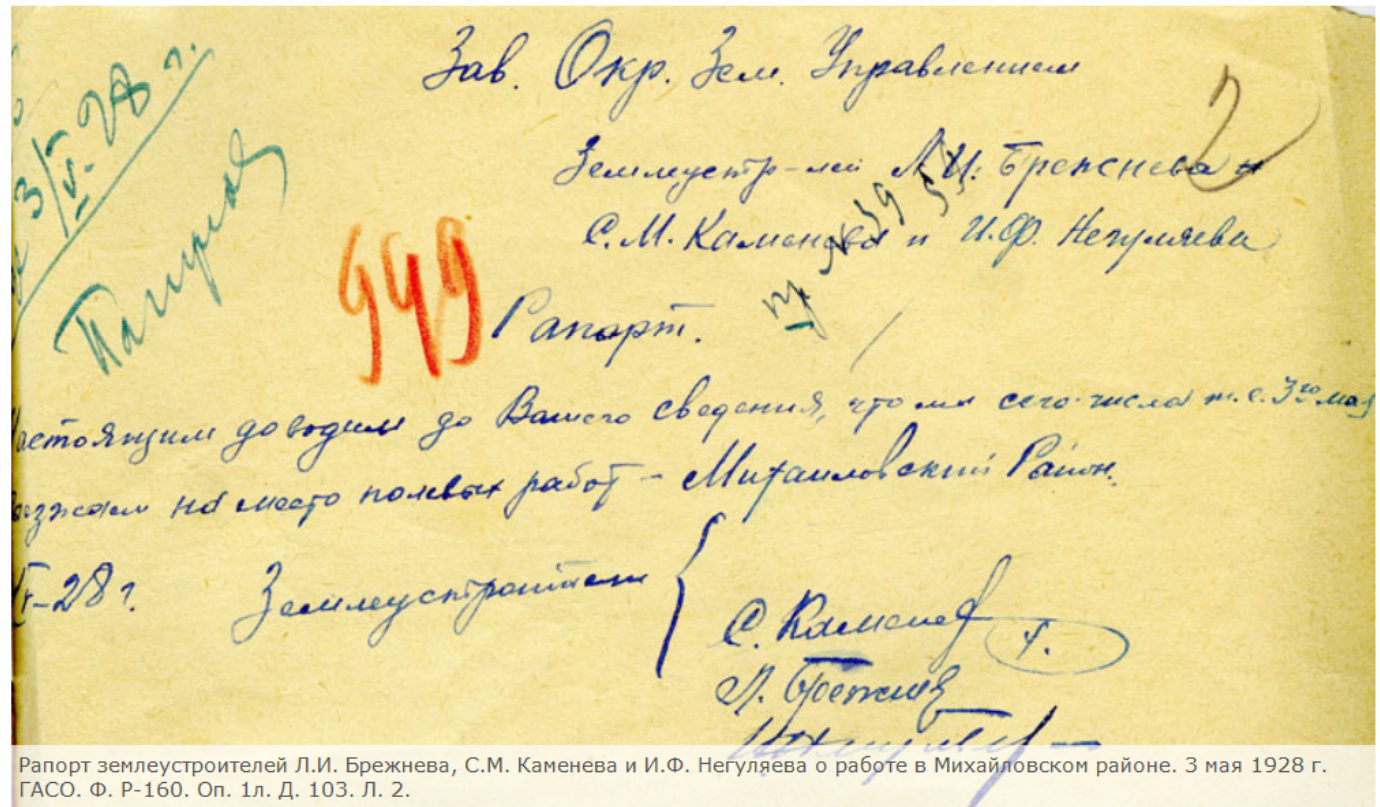 Зав. Окр. Зем. Управлением
3/V-28 г.
2
Землеустр-лей Л.И. Брежнева и
С.М. Каменева и И.Ф. Негуляева
949
Рапорт.
Настоящим доводим до Вашего сведения, что мы сего числа т.е. 3го мая
на место полевых работ – Михайловский Район.
V-28 г. Землеустроители
С. Каменев
Л. Брежнев
Рапорт землеустроителей Л.И. Брежнева, С.М. Каменева и И.Ф. Негуляева о работе в Михайловском районе. 3 мая 1928 г.
ГАСО. Ф. Р-160. Оп. 1л. Д. 103. Л. 2.